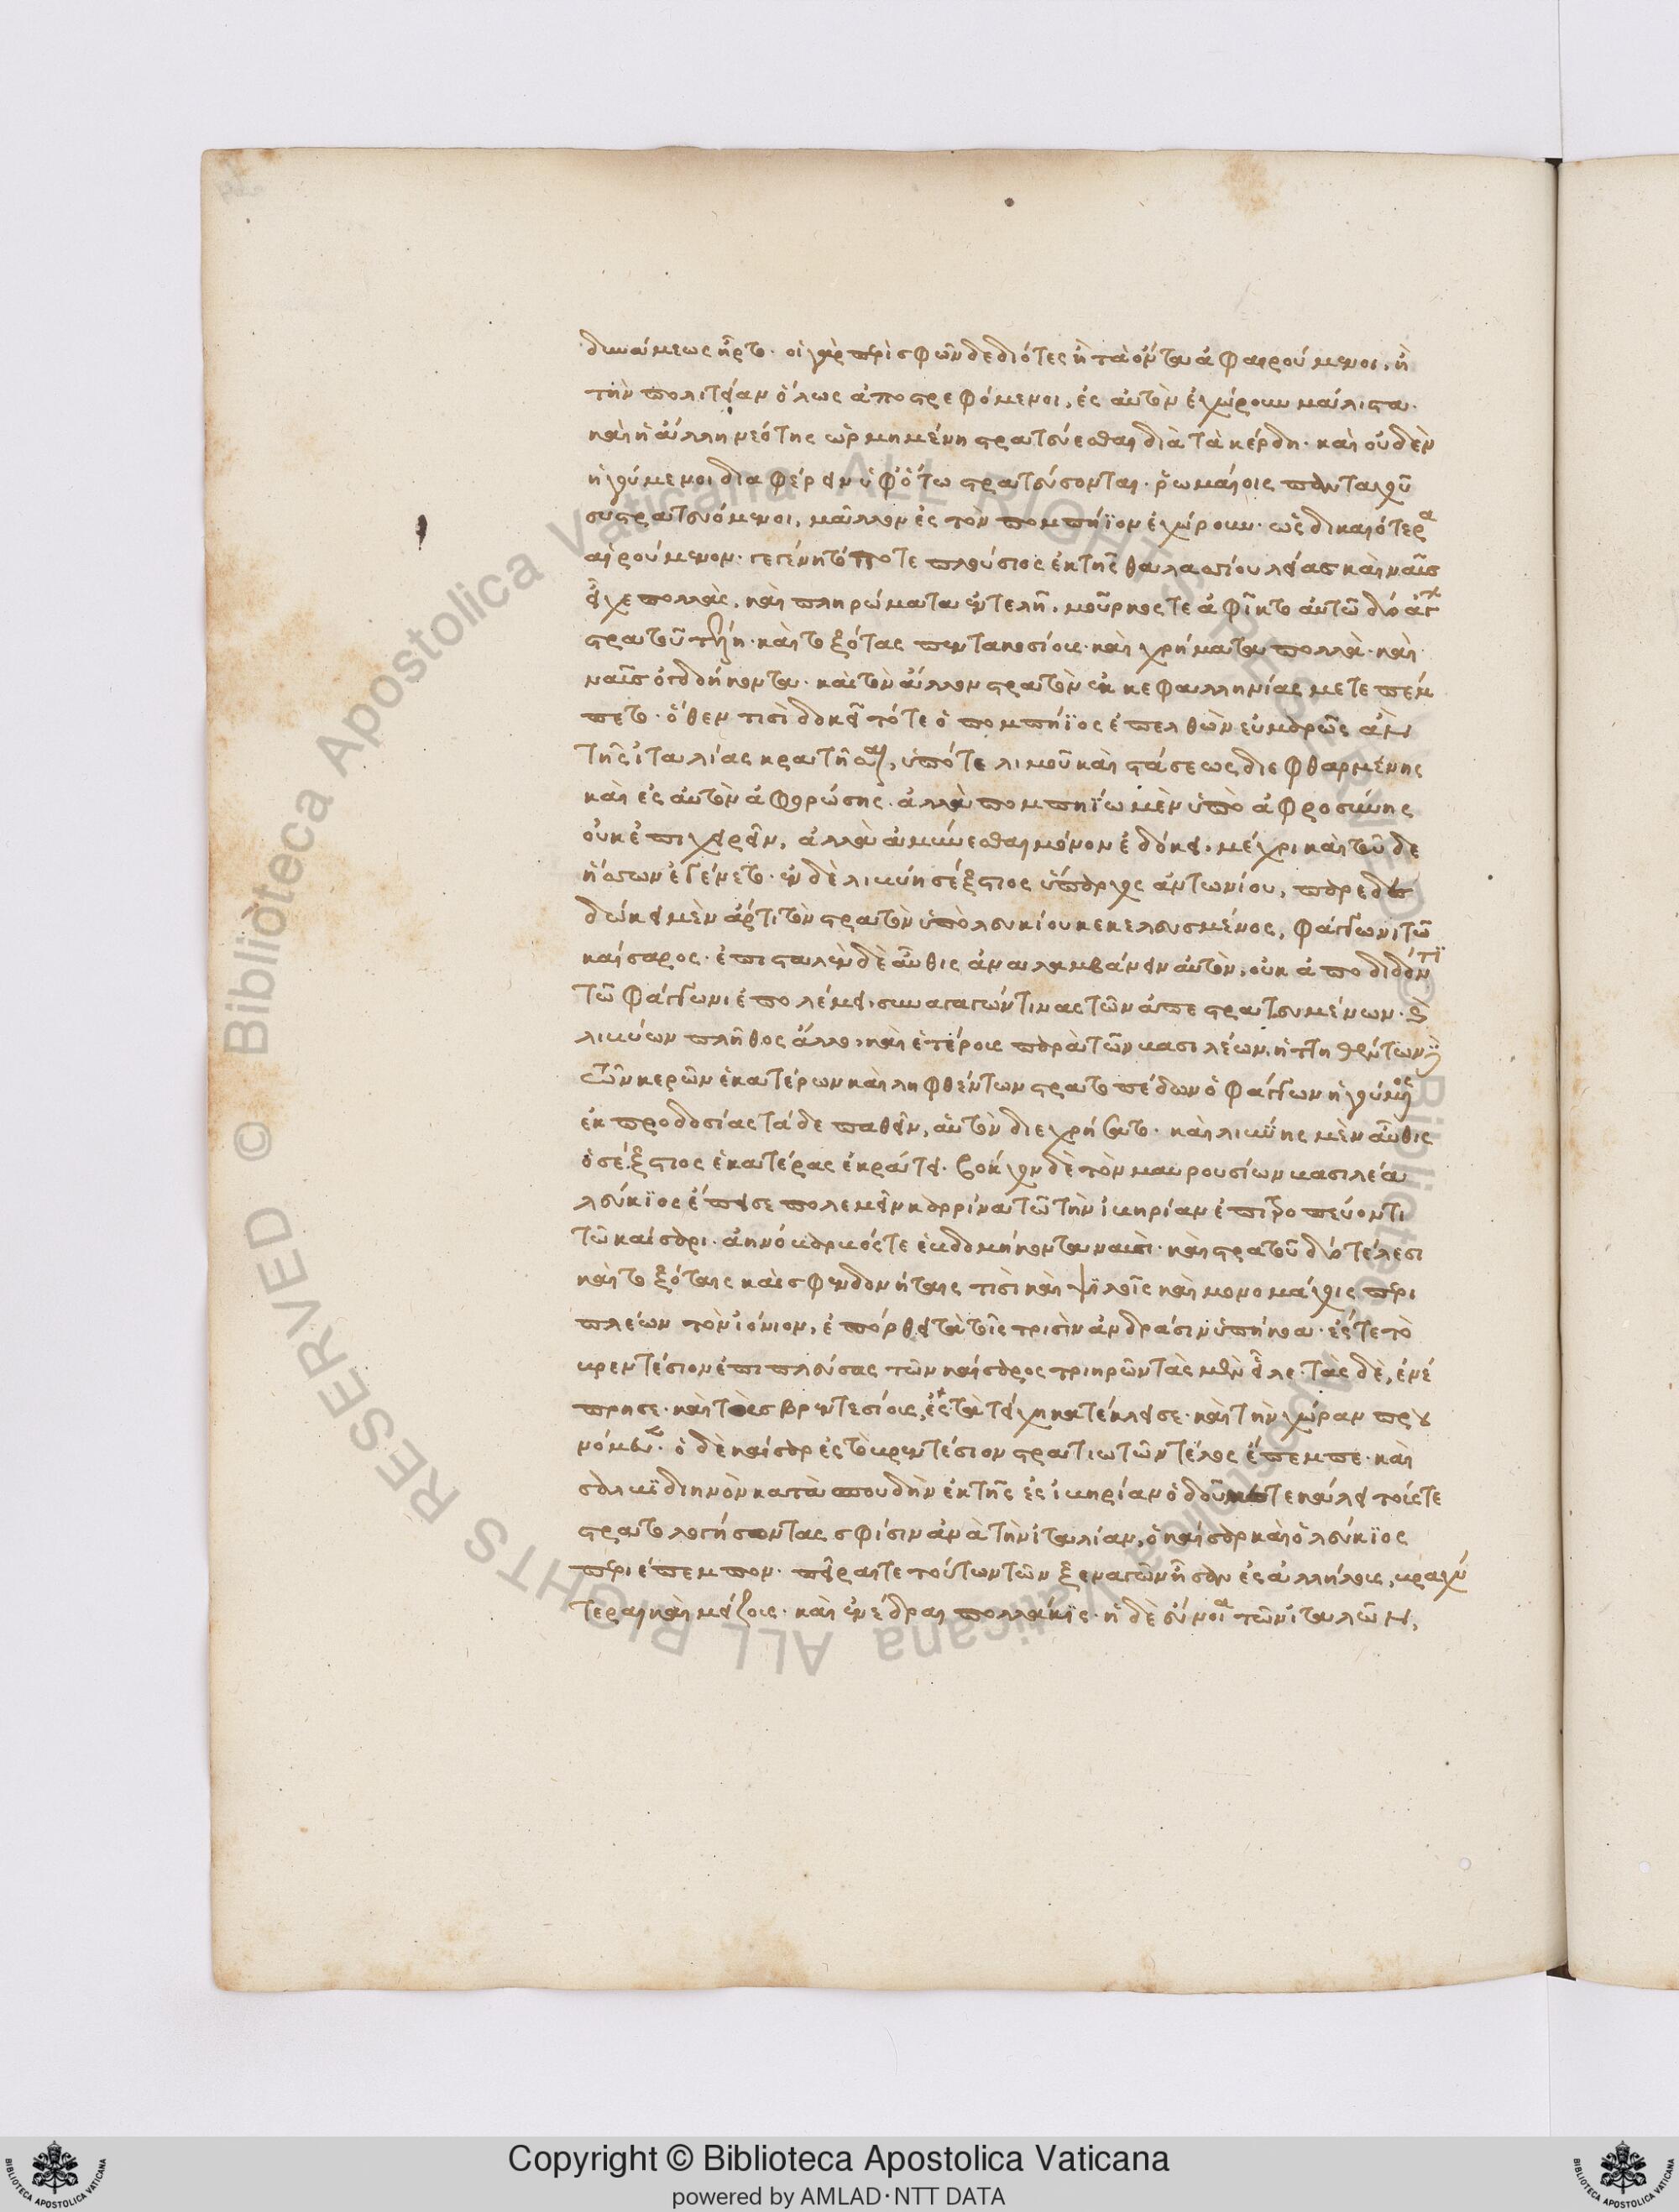 δυνάμεως ἦρτο· οἱ γὰρ περὶ σφῶν δεδιότες ἢ τὰ ὄντα ἀφαιρούμενοι, ἢ
τὴν πολιτείαν ὅλως ἀποστρεφόμενοι, ἐς αὐτὸν ἐχώρουν μάλιστα·
καὶ ἡ ἄλλη νεότης ὡρμημένη στρατεύεσθαι διὰ τὰ κέρδη· καὶ οὐδὲν
ἡγούμενοι διαφέρειν ὑφ' ὅτῳ στρατεύσονται· ῥωμαίοις πανταχοῦ
συστρατευόμενοι, μᾶλλον ἐς τὸν πομπήϊον ἐχώρουν· ὡς δικαιότερα
αἱρούμενον· γεγένητό ποτε πλούσιος ἐκ τῆς θαλασσίου λείας καὶ ναῦς
εἶχε πολλὰς, καὶ πληρώματα ἐντελῆ· μοῦρκος τε ἀφῖκτο αὐτῷ δύο ἄγων
στρατοῦ τέλη· καὶ τοξότας πεντακοσίους· καὶ χρήματα πολλὰ· καὶ
ναῦς ὀγδοήκοντα· καὶ τὸν ἄλλον στρατὸν ἐκ κεφαλληνίας μετεπέμ
πετο· ὅθεν τισὶ δοκεῖ τότε ὁ πομπήϊος ἐπελθὼν εὐμαρῶς ἂν
τῆς ἰταλίας κρατῆσαι, ὑπό τε λιμοῦ καὶ στάσεως διεφθαρμένης
καὶ ἐς αὐτὸν ἀφορώσης· ἀλλὰ πομπηΐῳ μὲν ὑπὸ ἀφροσύνης
οὐκ ἐπιχειρεῖν, ἀλλὰ ἀμύνεσθαι μόνον ἐδόκει, μέχρι καὶ τοῦδε
ἥσσων ἐγένετο· ἐν δὲ λιβύῃ σέξστιος ὕπαρχος ἀντωνίου, παρεδε
δώκει μὲν ἄρτι τὸν στρατὸν ὑπὸ λευκίου κεκελευσμένος, φάγγωνι τῷ
καίσαρος· ἐπισταλὲν δὲ αὖθις ἀναλαμβάνειν αὐτὸν, οὐκ ἀποδιδόντι
τῷ φάγγωνι ἐπολέμει, συναγαγών τινας τῶν ἀπεστρατευμένων· καὶ
λιβύων πλῆθος ἄλλο, καὶ ἑτέρους παρὰ τῶν βασιλέων, ἡττηθέντων δὲ
τῶν κερῶν ἑκατέρων καὶ ληφθέντων στρατοπέδων ὁ φάγγων ἡγούμενος
ἐκ προδοσίας τάδε παθεῖν, αὑτὸν διεχρήσατο· καὶ λιβύης μὲν αὖθις
ὁ σέξστιος ἑκατέρας ἐκράτει· βόκχον δὲ τὸν μαυρουσίων βασιλέα
λεύκϊος ἔπεισε πολεμεῖν καρρίνᾳ τῷ τὴν ἰβηρίαν ἐπιτροπεύοντι
τῷ καίσαρι· ἀηνόβαρβός τε ἑβδομήκοντα ναυσὶ· καὶ στρατοῦ δύο τέλεσι
καὶ τοξόταις καὶ σφενδονήταις τισὶ καὶ ψϊλοῖς καὶ μονομάχοις περι
πλέων τὸν ἰόνιον, ἐπόρθει τὰ τοῖς τρισὶν ἀνδράσιν ὑπήκοα· ἔς τε τὸ
βρεντέσιον ἐπιπλεύσας τῶν καίσαρος τριηρῶν τὰς μὲν εἷλε· τὰς δὲ, ἐνέ
πρησε· καὶ τοὺς βρεντεσίους, ἐς τὰ τείχη κατέκλεισε· καὶ τὴν χώραν πρου
νόμευεν· ὁ δὲ καίσαρ ἐς τὸ βρεντέσιον στρατιωτῶν τέλος ἔπεμπε· καὶ
σαλβϊδιηνὸν κατὰ σπουδὴν ἐκ τῆς ἐς ἰβηρίαν ὁδοῦ μετεκάλει τούς τε
στρατολογήσοντας σφίσιν ἀνὰ τὴν ἰταλίαν, ὁ καίσαρ καὶ ὁ λεύκϊος
περιέπεμπον· πεῖραί τε τούτων τῶν ξεναγῶν ἦσαν ἐς ἀλλήλους, βραχύ
τεραι καὶ μείζους· καὶ ἐνέδραι πολλάκϊς· ἡ δὲ εὔνοια τῶν ἰταλῶν,
Copyright © Biblioteca Apostolica Vaticana
powered by AMLAD·NTT DATA